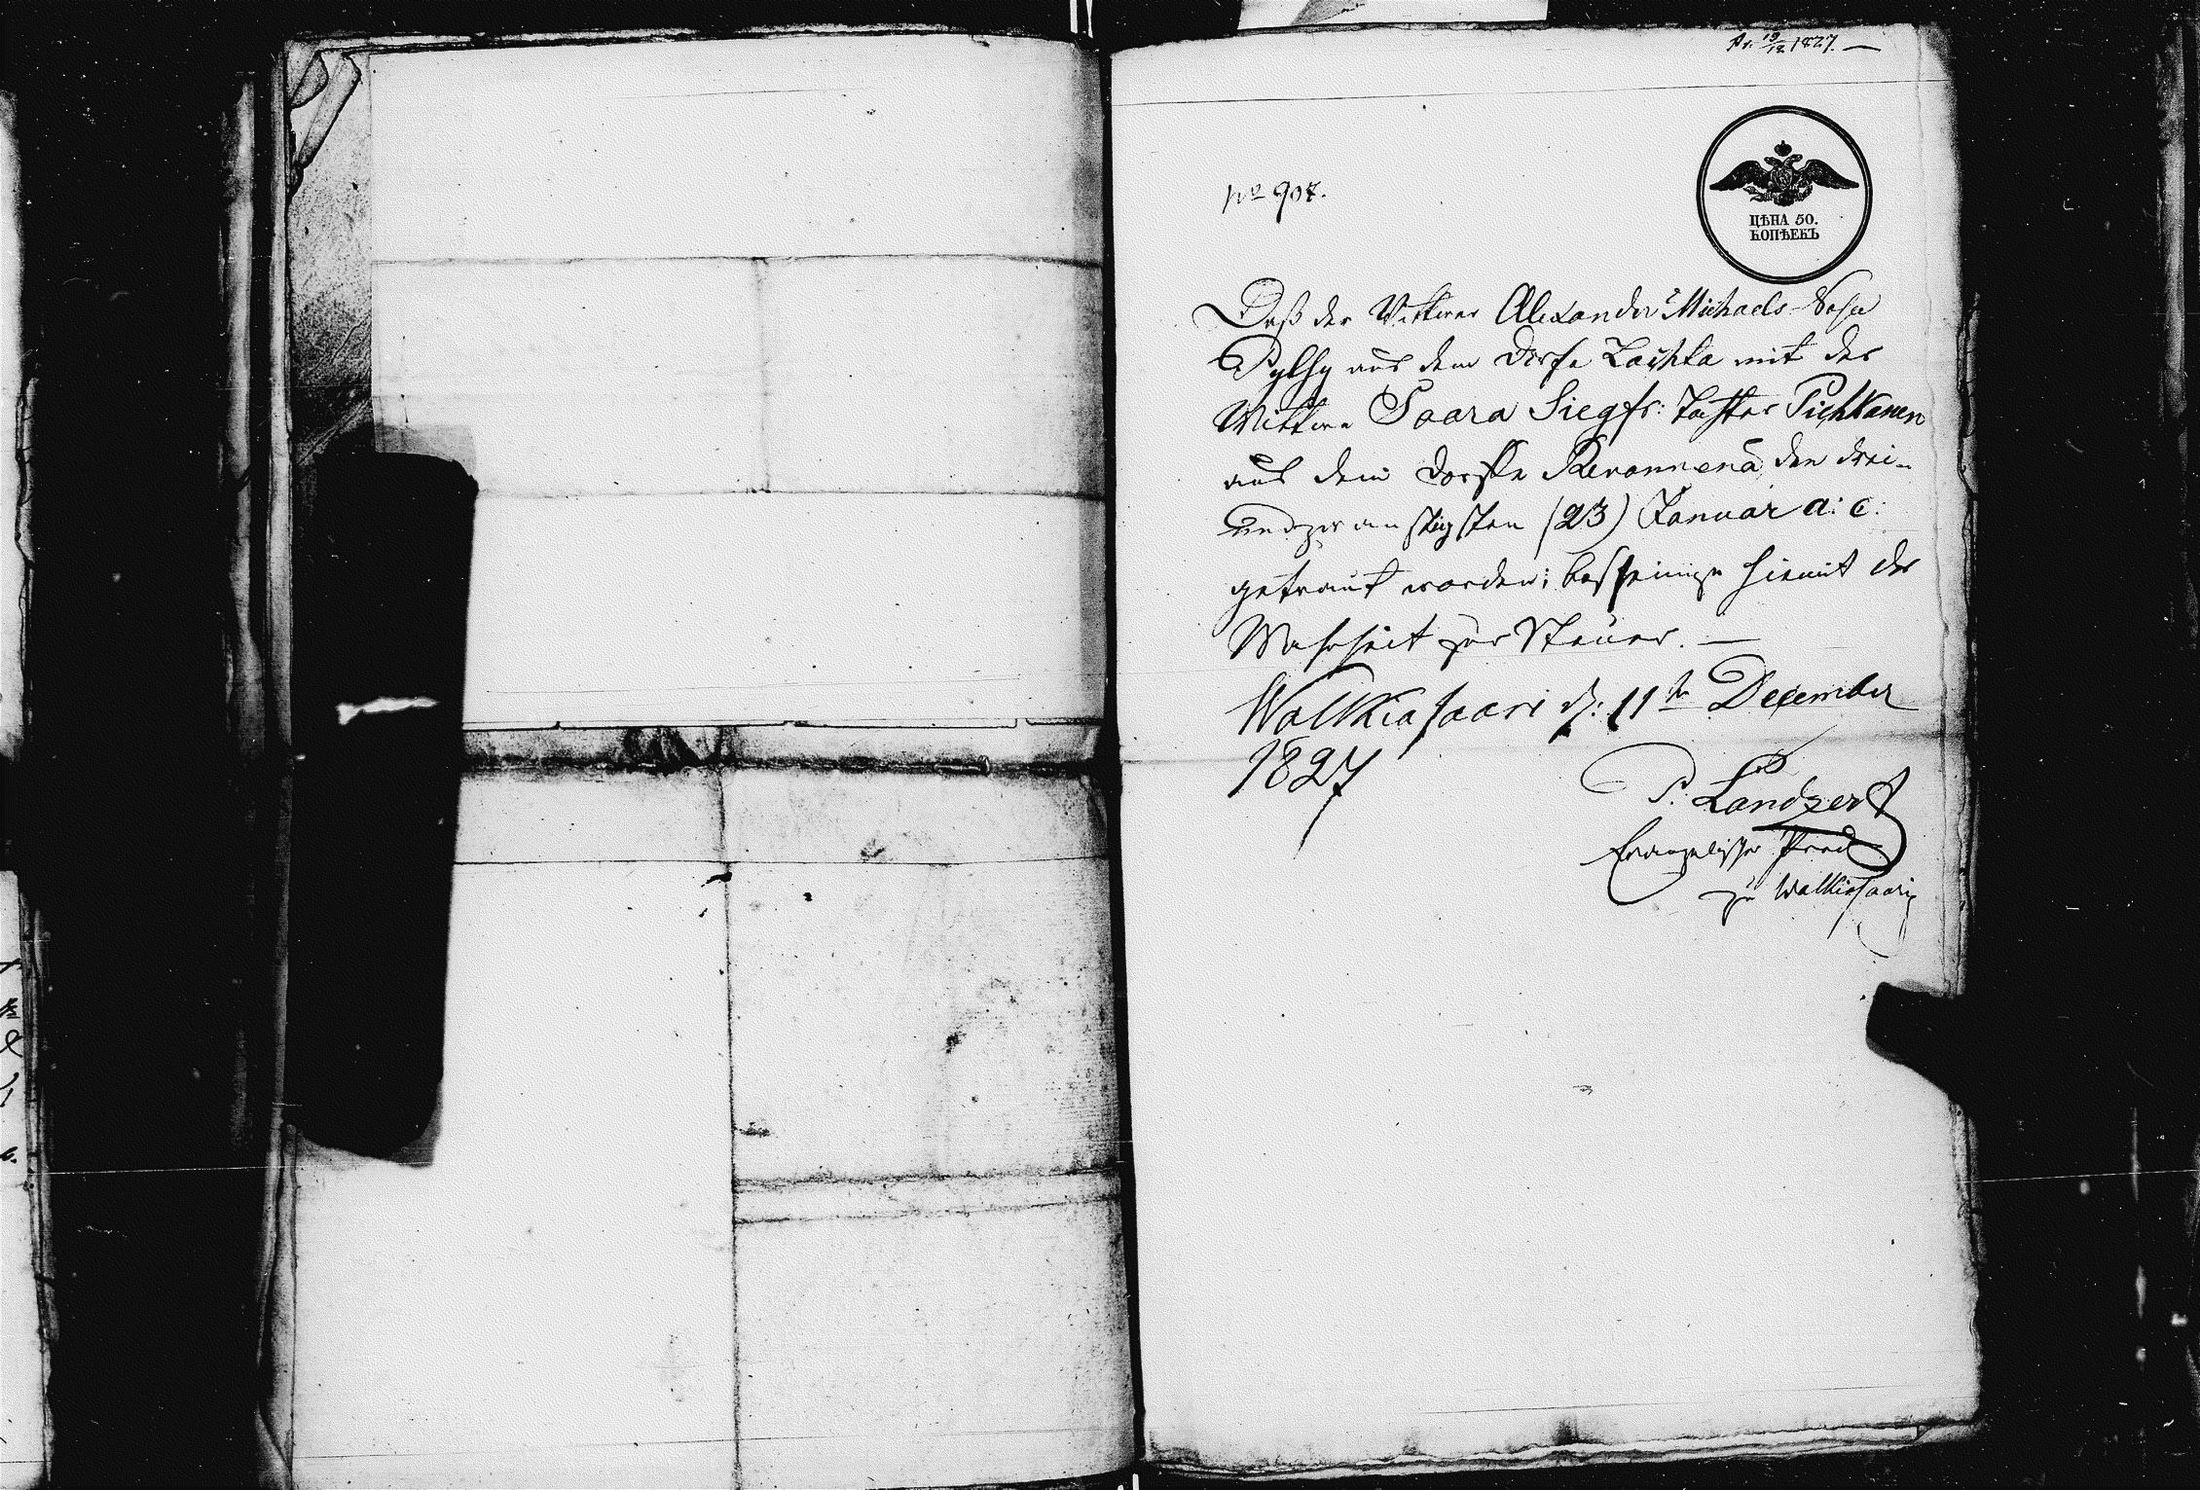 Pr. 19/12. 1827. —
No 907.
ЦѢНА 50.
КОПѢЕКЪ
Daß der Wittwer Alexander Michaels-Sohn
Pylsy aus dem Dorfe Lachta mit der
Wittwe Saara Siegfr: Tochter Pichkanen
aus dem Dorffe Rewonnenä den drei-
undzwanstigsten (23) Januar a: c:
getraut worden; bescheinige hiemit der
Wahrheit zur Steuer. —
Walkiasaari d: 11ten December
1827
P: Landzert
Evangelischer Pred
zu Walkiasaari